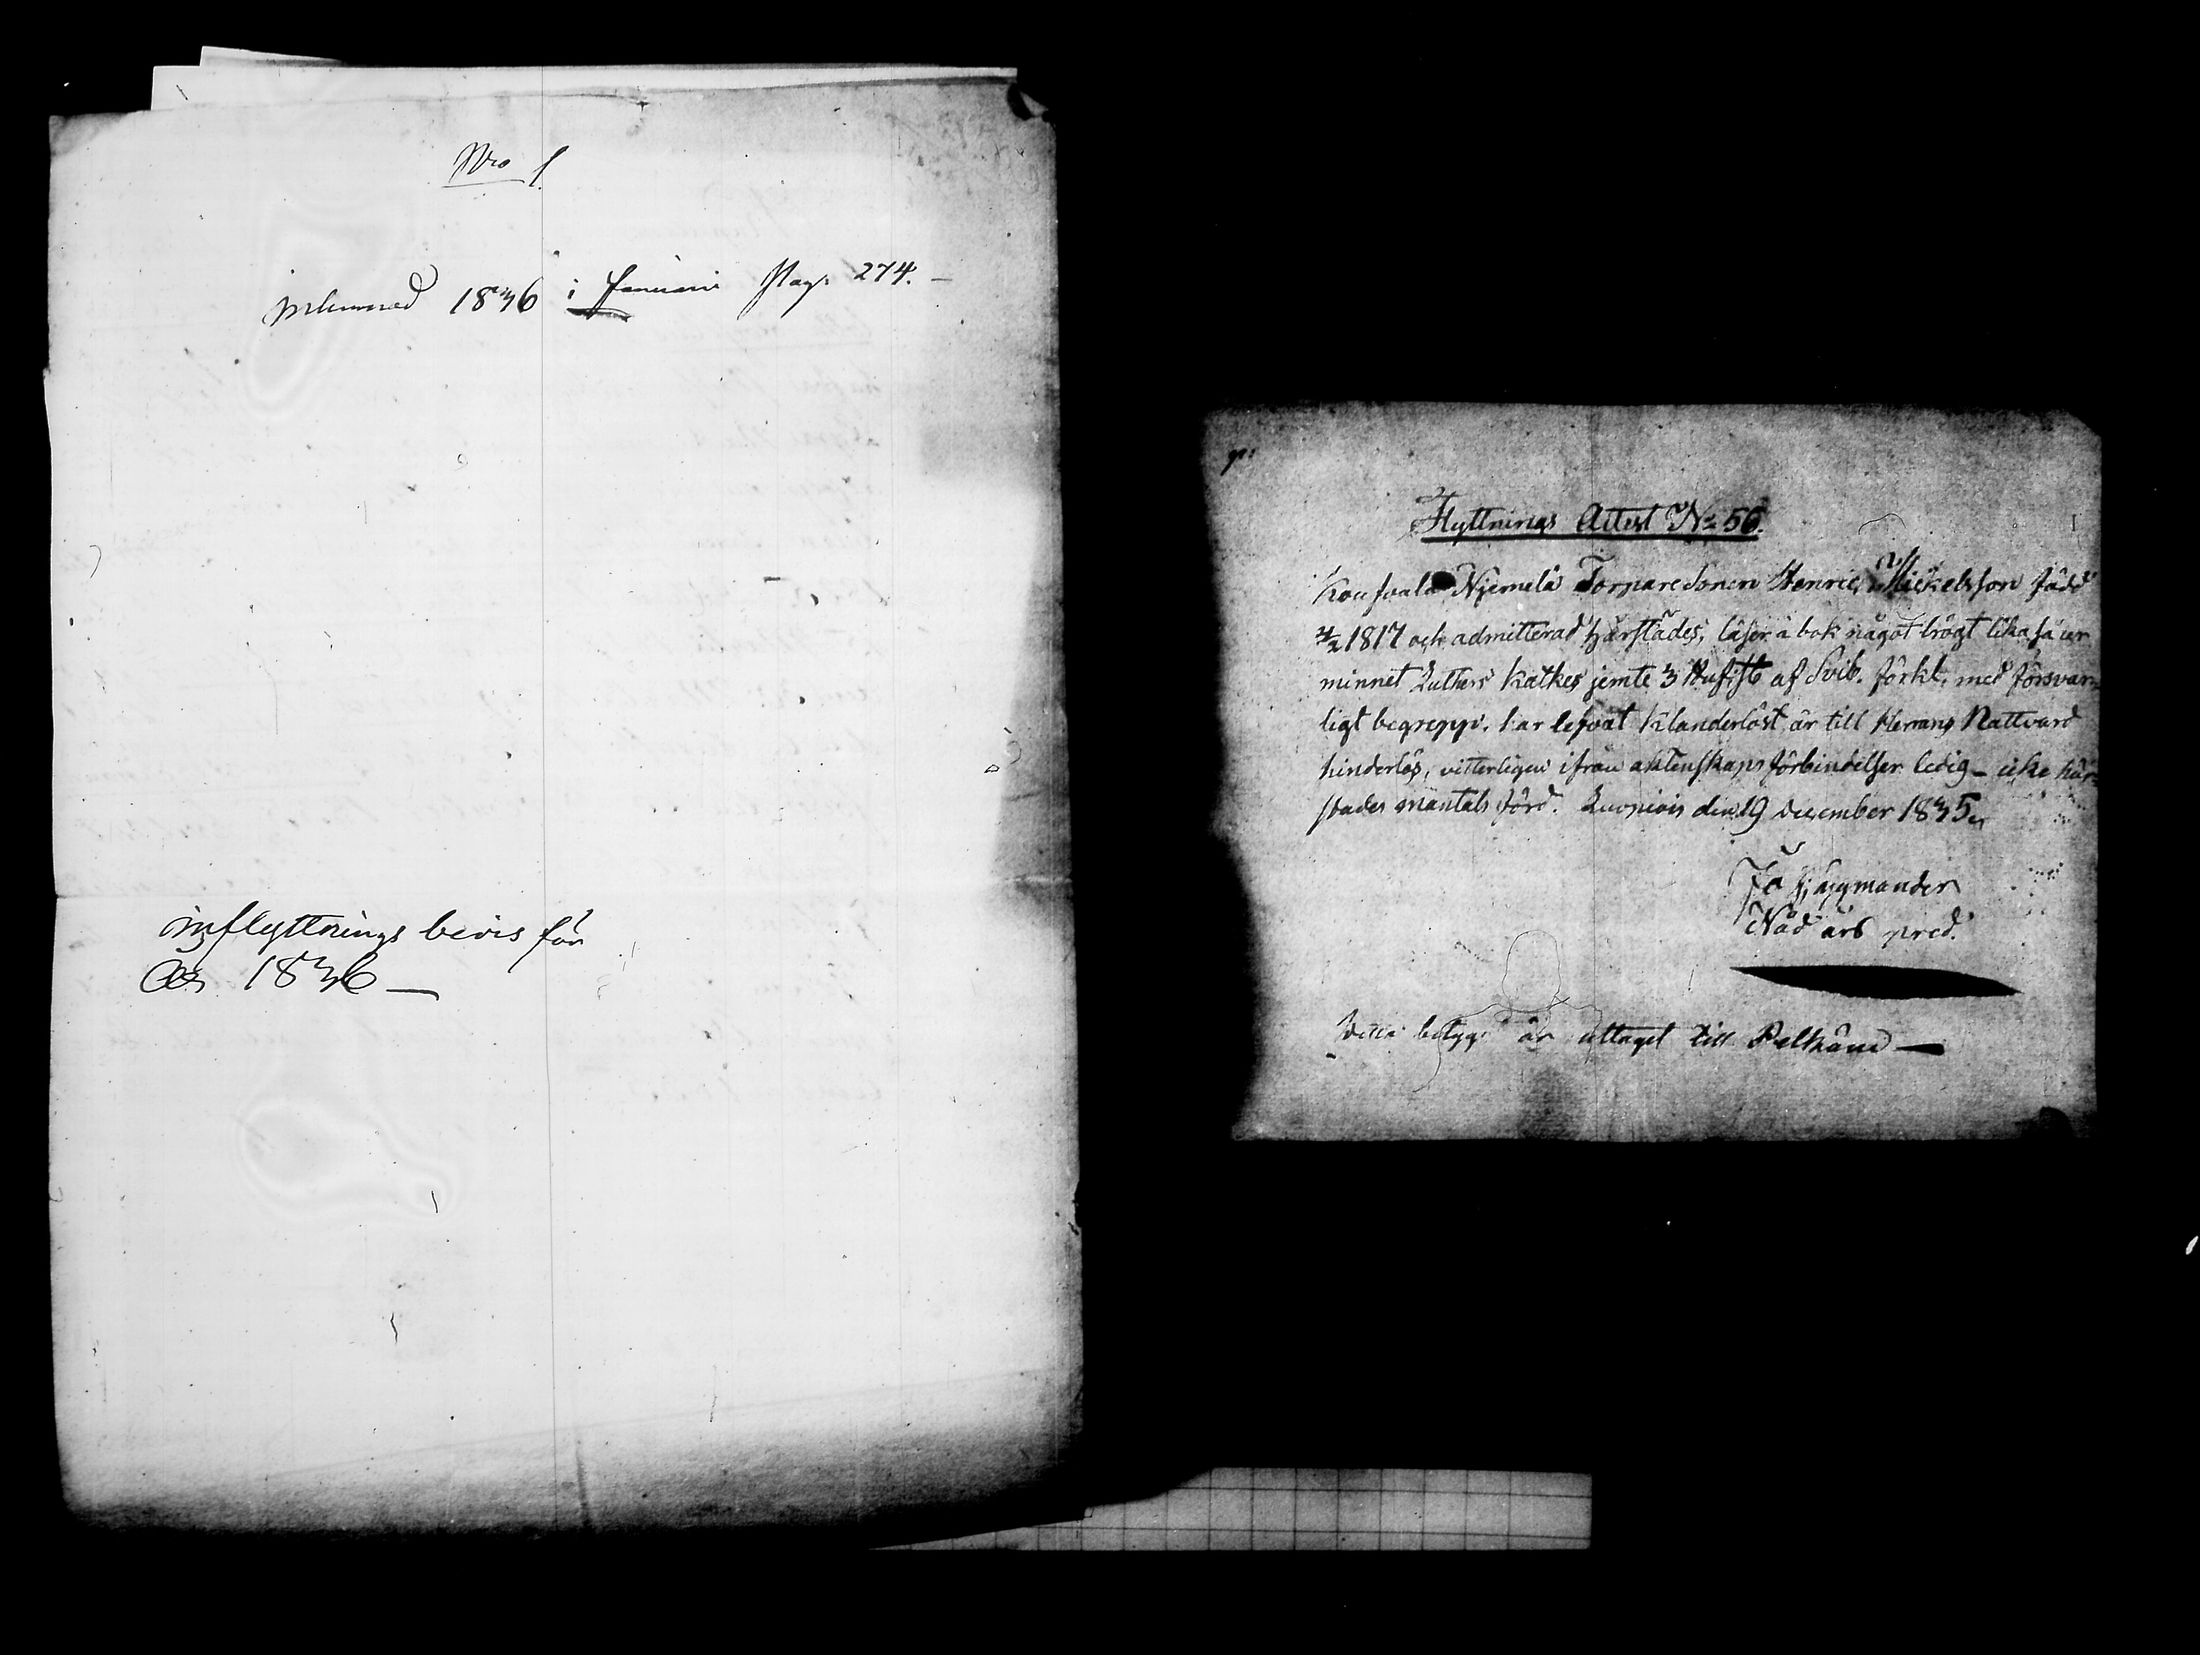 Nro 1
inlemnad 1836 i Januari Pag. 274. –
inflyttnings bevis för
År 1836 –
Flyttnings Attest No 56.
Kousvala Njemelä Torparesonen Henric Mickelsson född
1817 och admitterad härstädes, läser i bok något trögt lika så ur
minnet Luthers katkes jemte 3 Hufst af Svib. förkl. med försvar=
ligt begrepp. har lefvat klanderlöst är till Herrans Nattvard
hinderlös, vitterligen ifrån äktenskaps förbindelser ledig – icke här=
stades mantals förd. Luopiois den 19 December 1835
Häggmander
Nåd års pred.
Detta betyg är uttaget till Pelkäne –